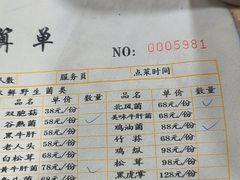 算 单
NO: 0005981
人数 服务员 点菜时间
鲜野生菌类
品名 单价 数量 品名 单价 数量
双脆菇 38元/份 北风菌 68元/份
谷熟菌 58元/份 美味牛肝菌 68元/份
黑牛肝 58元/份 鸡油菌 88元/份
老人头 58元/份 竹荪 68元/份
白松茸 68元/份 鸡枞 98元/份
黄牛肝菌 58元/份 松茸 98元/份
黑虎掌 128元